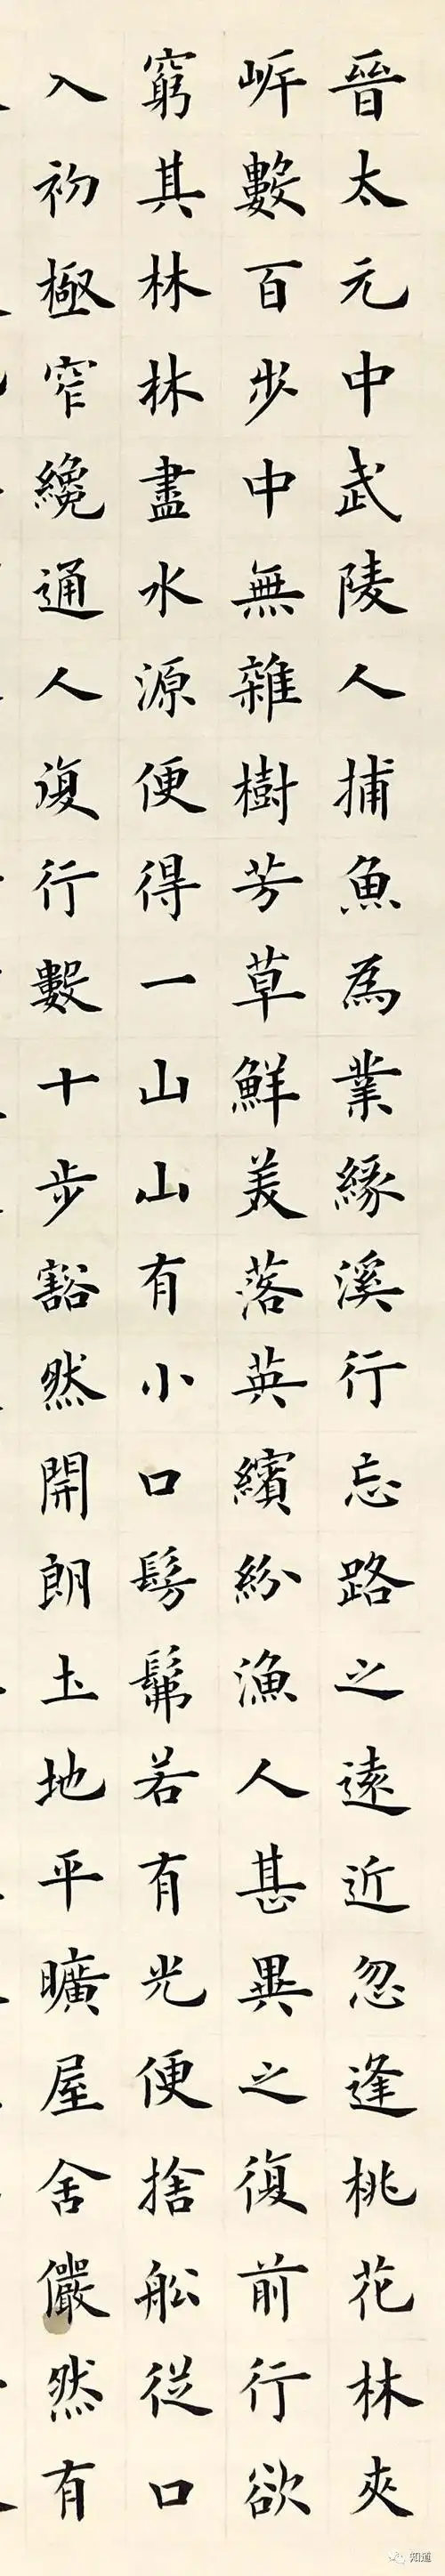 晉太元中武陵人捕魚為業緣溪行忘路之遠近忽逢桃花林夾
岍數百步中無雜樹芳草鮮美落英繽紛漁人甚異之復前行欲
窮其林林盡水源便得一山山有小口髣髴若有光便捨船從口
入初極窄纔通人復行數十步豁然開朗土地平曠屋舍儼然有
知道